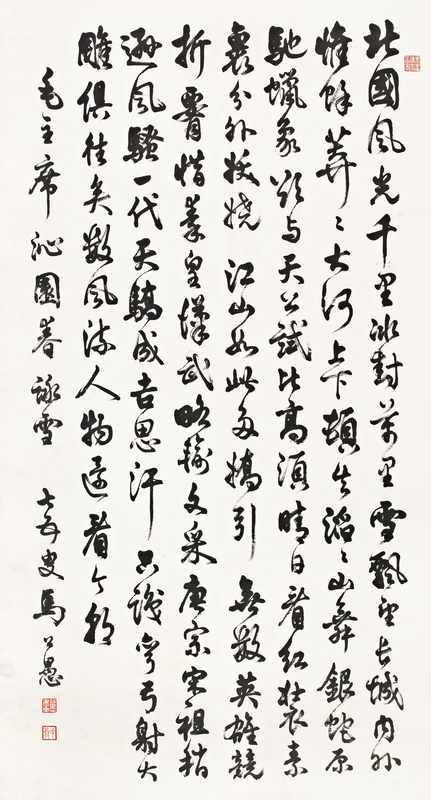 北國風光千里冰封萬里雪飄望長城内外
惟餘莽〻大河上下頓失滔〻山舞銀蛇原
馳蠟象欲与天公試比高須晴日看紅裝素
裹分外妖嬈江山如此多嬌引無數英雄競
折腰惜秦皇漢武略輸文采唐宗宋祖稍
遜風騷一代天驕成吉思汗只識彎弓射大
雕俱往矣數風流人物還看今朝
毛主席沁園春詠雪 叟馬公愚